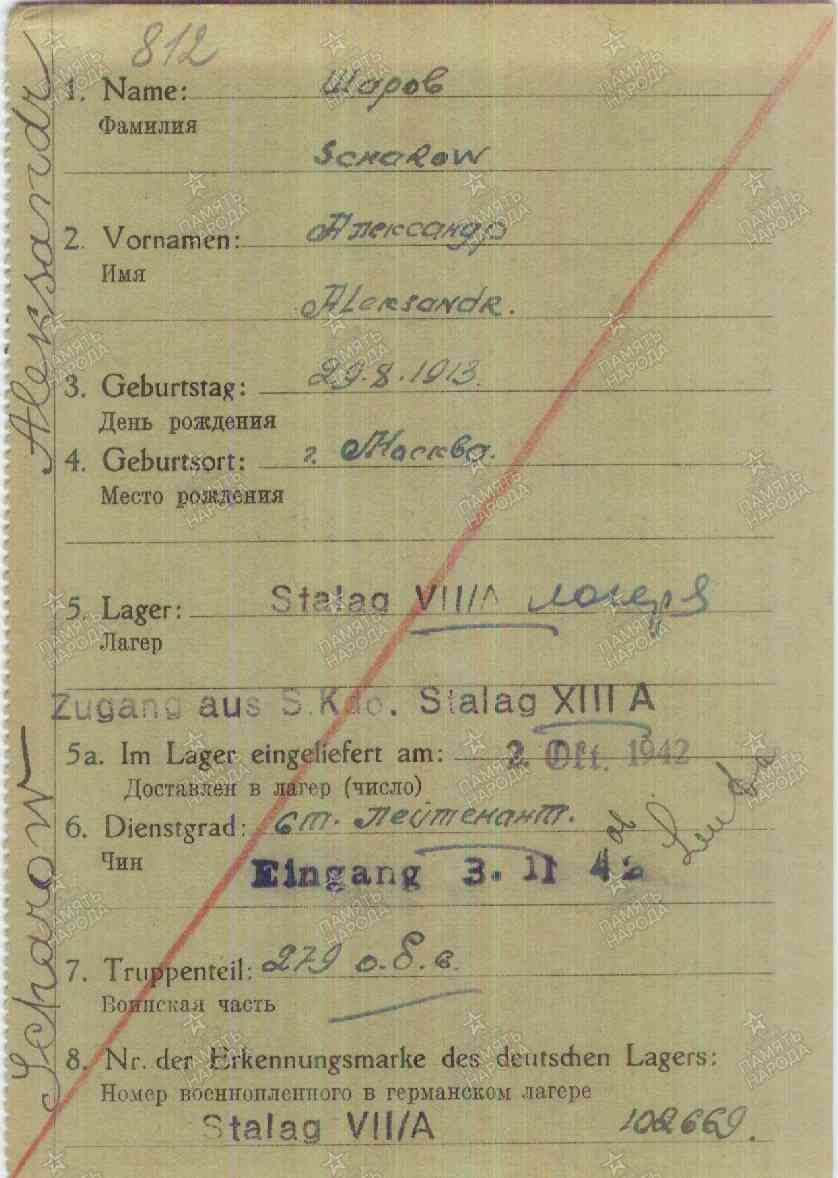 812
1. Name: Шаров
Фамилия
Scharow
2. Vornamen: Александр
Имя
Aleksandr.
3. Geburtstag: 29.8.1913.
День рождения
4. Geburtsort: г. Москва.
Место рождения
5. Lager: Stalag VII/A лагеря
Лагер
Zugang aus S.Kdo. Stalag XIII A
5a. Im Lager eingeliefert am: 2. Okt. 1942
Доставлен в лагер (число)
6. Dienstgrad: ст. лейтенант.
Чин
Eingang 3. 11 42
7. Truppenteil: 279 о.б.в.
Воинская часть
8. Nr. der Erkennungsmarke des deutschen Lagers:
Номер военнопленного в германском лагере
Stalag VII/A 102669.
Scharow Aleksandr
ПАМЯТЬ НАРОДА